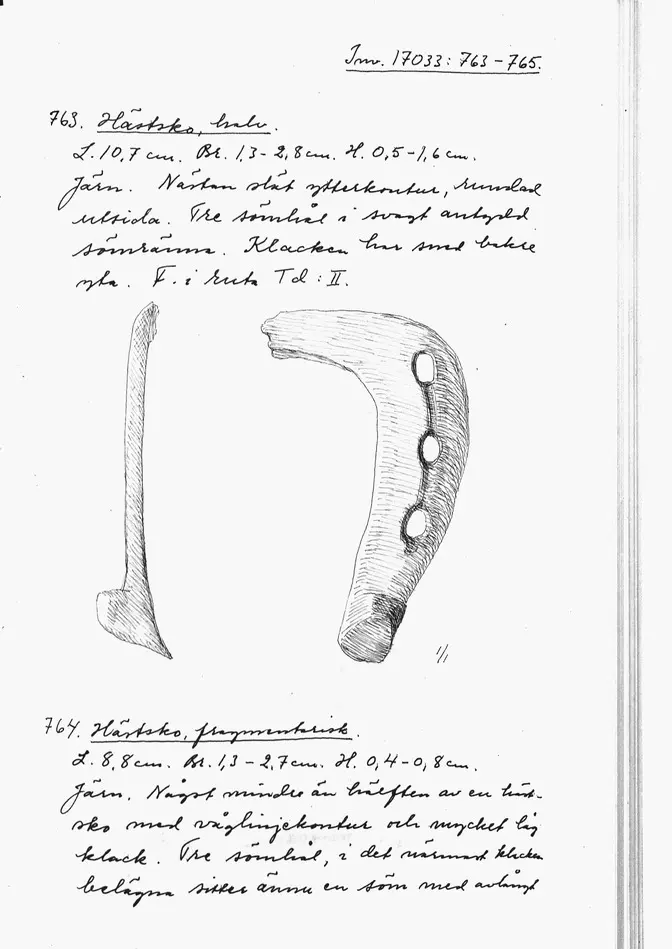 Inv. 17033: 763-765.
763. Hästsko, halv.
L. 10,7 cm. Br. 1,3-2,8 cm. H. 0,5-1,6 cm.
Järn. Nästan slät ytterkontur, rundad
utsida. Tre sömhål i svagt antydd
sömränna. Klacken har sned bakre
yta. F. i ruta Td: II.
1/1
764. Hästsko, fragmentarisk.
L. 8,8 cm. Br. 1,3-2,7 cm. H. 0,4-0,8 cm.
Järn. Något mindre än hälften av en häst-
sko med våglinjekontur och mycket låg
klack. Tre sömhål, i det närmast klacken
belägna sitter ännu en söm med avlångt